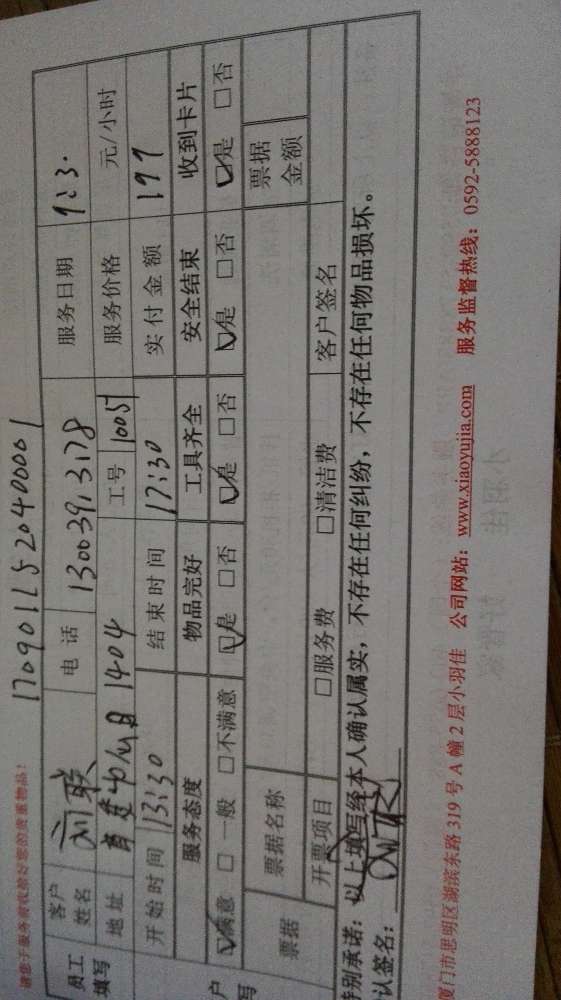 1709011520400001
请您于服务前收拾好您的贵重物品！
员工填写 客户姓名 电话 服务日期 9.23.
地址 1404 工号 10051 服务价格 元/小时
开始时间 13:30 结束时间 17:30 实付金额 197
服务态度 物品完好 工具齐全 安全结束 收到卡片
☑满意 □一般 □不满意 ☑是 □否 ☑是 □否 ☑是 □否 ☑是 □否
票据 票据名称 票据金额
开票项目 □服务费 □清洁费 客户签名
特别承诺：以上填写经本人确认属实，不存在任何纠纷，不存在任何物品损坏。
认签名：
厦门市思明区湖滨东路 319 号 A 幢 2 层小羽佳 公司网站：www.xiaoyujia.com 服务监督热线：0592-5888123